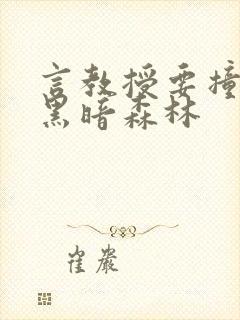 言教授要撞
黑暗森林
崔嚴